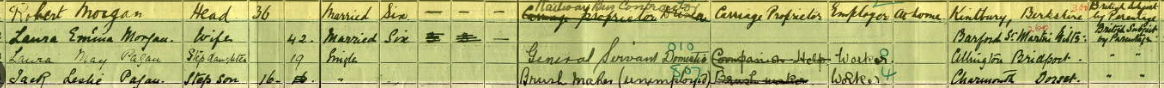 Robert Morgan Head 36 Married Six — — — Railway Bus Contractor Carriage Proprietor Driver Carriage Proprietor Employer At home Kintbury, Berkshire British Subject by Parentage
Laura Emma Morgan. Wife 42. Married Six — Barford St Martin Wilts. British Subject by Parentage
Laura May Pagan Stepdaughter 19 Single General Servant Domestic 010 Companion Help Worker 8 Allington Bridport " "
Jack Leslie Pagan. Stepson 16 - " - Brush Maker (unemployed) 507 Brush maker Worker 4 Charmouth Dorset. " "